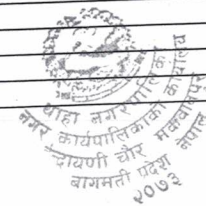 थाहा नगरपालिका
नगर कार्यपालिकाको कार्यालय
चौर मकवानपुर
बागमती प्रदेश नेपाल
२०७३